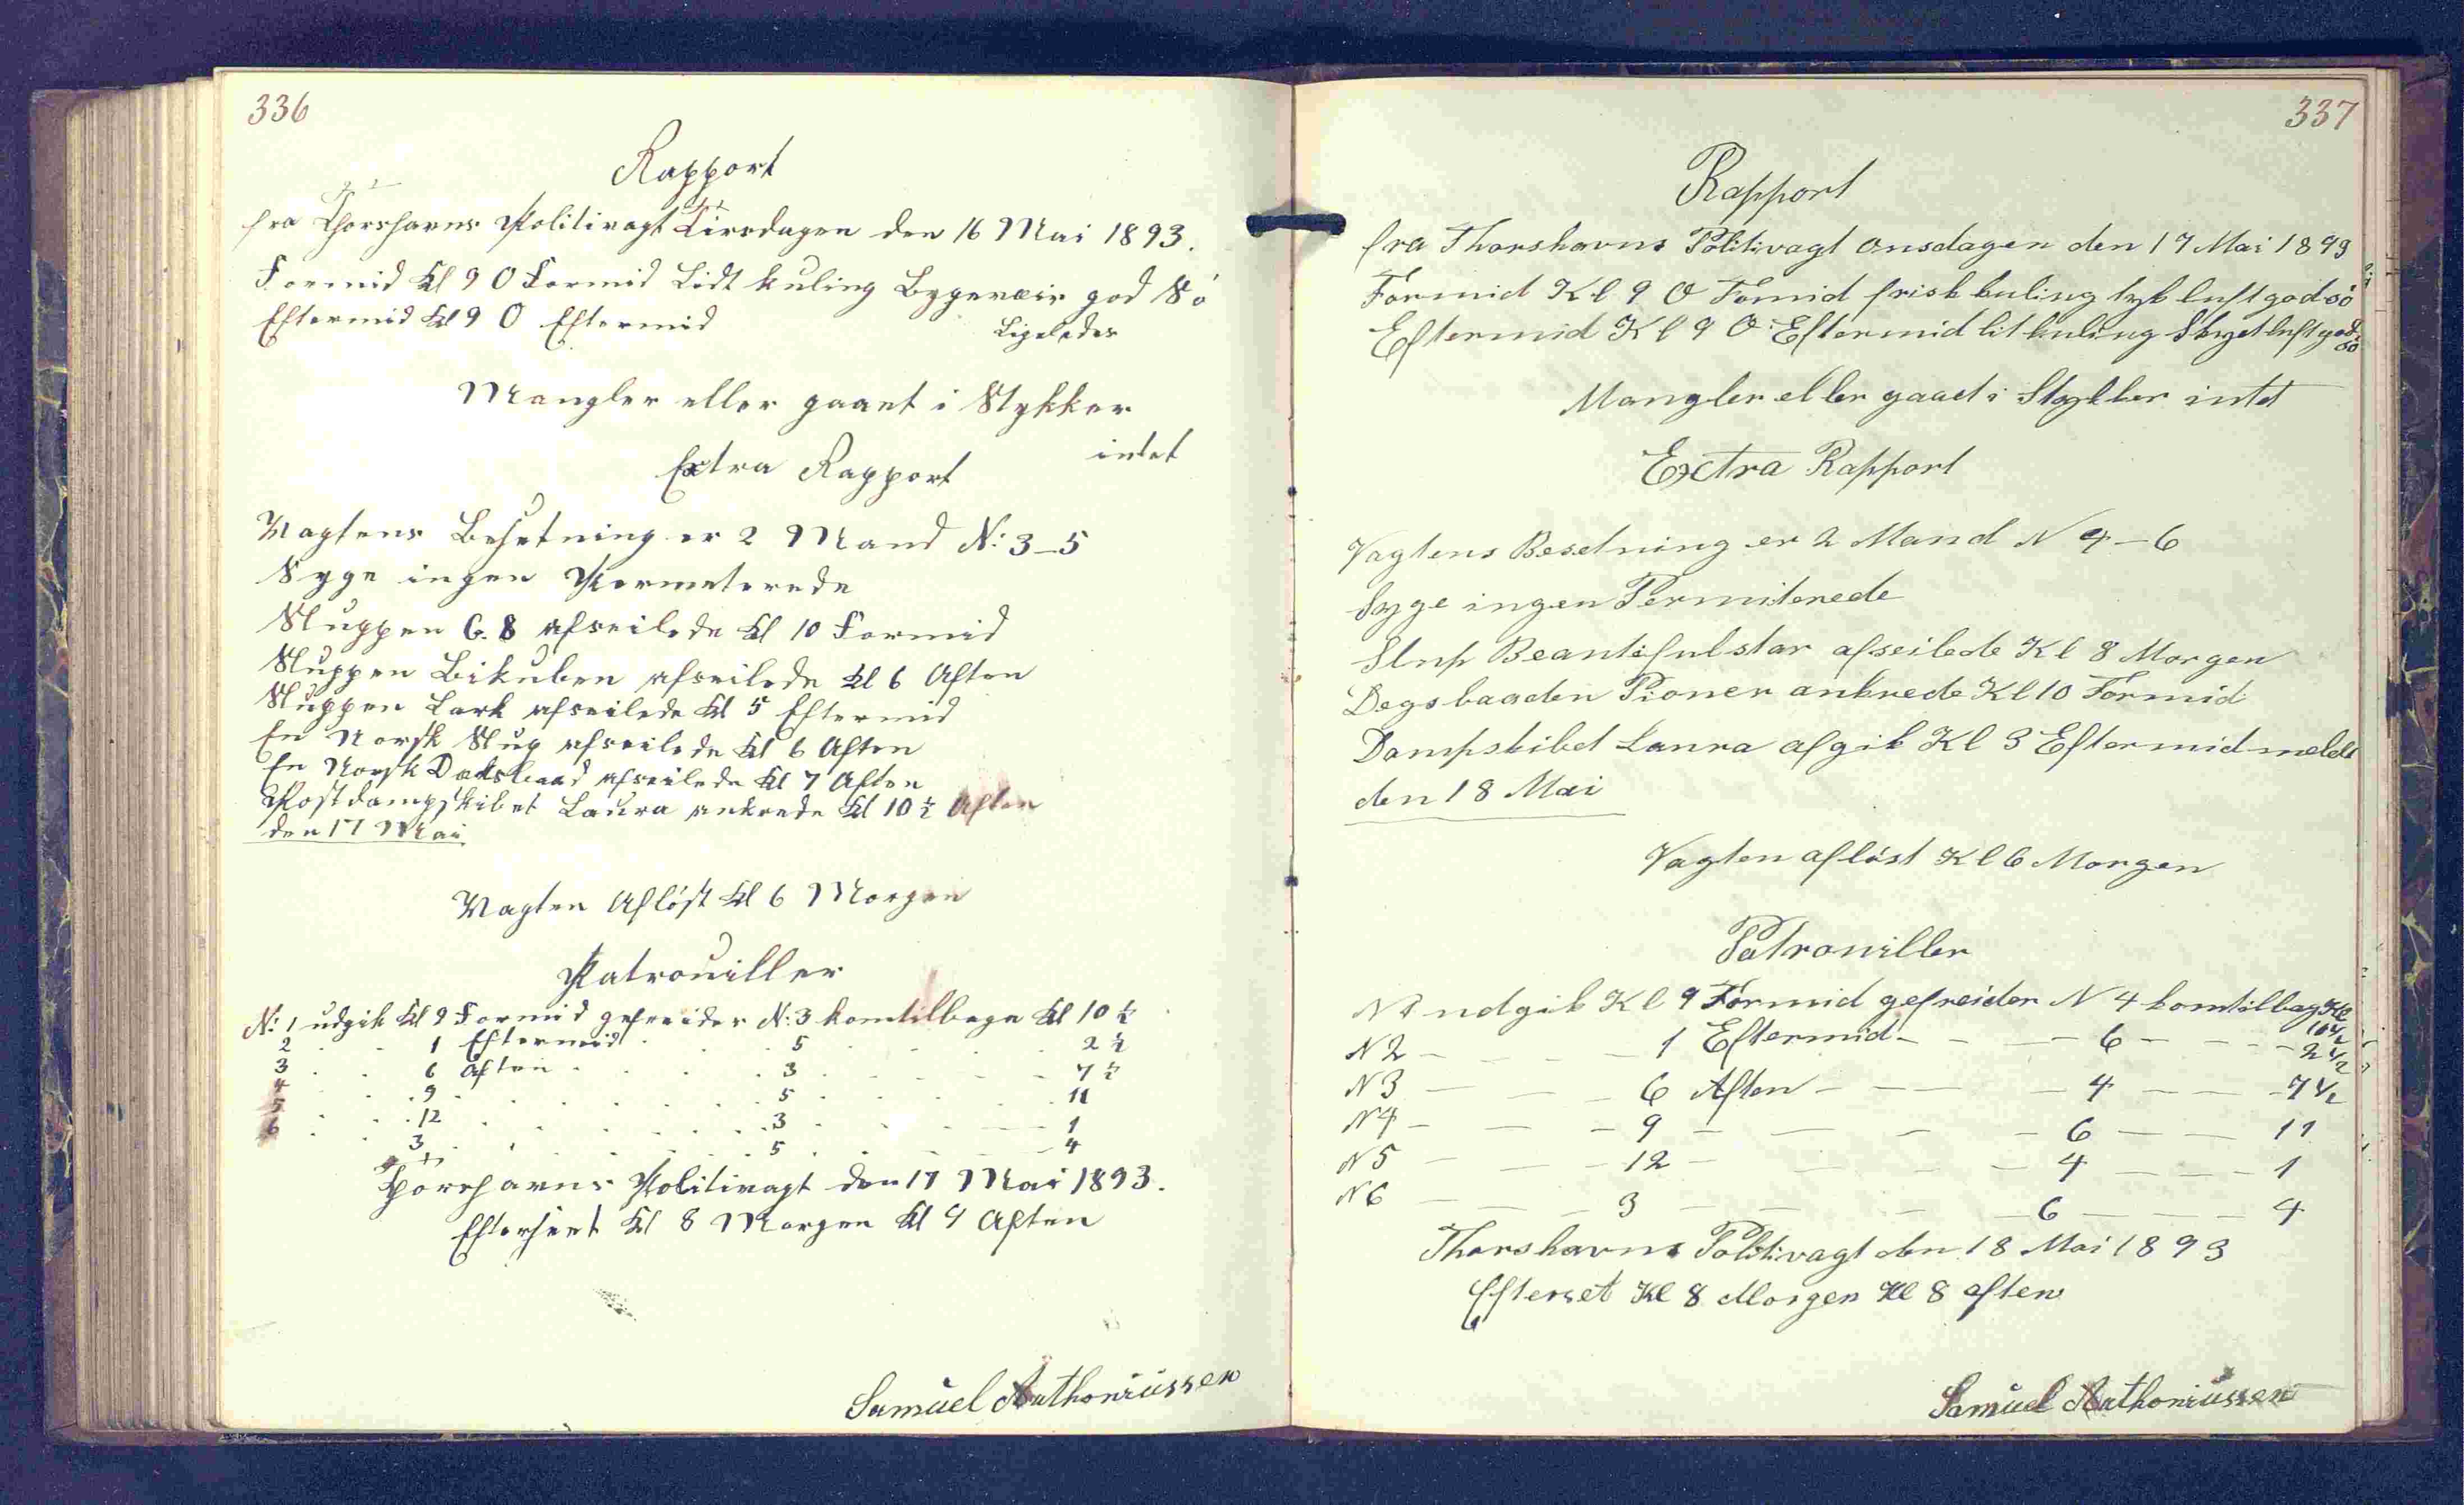 336
Rapport
fra Thorshavns Politivagt Tirsdagen den 16 Mai 1893.
Formid Kl 9 O Formid Lidt kuling Bygeveir god Sö
Eftermid Kl 9 O Eftermid Ligeledes
Mangler eller gaaet i Stykker
intet
Extra Rapport
Vagtens Besetning er 2 Mand N: 3-5
Syge ingen Permeterede
Sluppen G. 8 afseilede Kl 10 Formid
Sluppen Bikuben afseilede Kl 6 Aften
Sluppen Lark afseilede Kl 5 Eftermid
En Norsk Slup afseilede Kl 6 Aften
En Norsk afseilede Kl 7 Aften
Postdampskibet Laura ankrede Kl 10 ½ Aften
den 17 Mai
Vagten Aflöst Kl 6 Morgen
Patrouiller
N: 1 udgik Kl 9 Formid gefreider N: 3 komtilbage Kl 10 ½
2 . . 1 Eftermid . . . 5 . . . . 2 ½
3 . . 6 Aften . . . . 3 . . . - 7 ½
4 . . 9 . . . . . . 5 . . . . 11
5 . . 12 . . . . . . 3 . . . - 1
6 . . 3 . . . . . . 5 . . . - 4
Thorshavns Politivagt den 17 Mai 1893.
Efterseet Kl 8 Morgen Kl 9 Aften
Samuel Anthoniussen
337
Rapport
fra Thorshavns Politivagt Onsdagen den 17 Mai 1893
Formid Kl 9 O Fomid frisk kuling tyk luft god sö
Eftermid Kl 9 O Eftermid lit kuling Skyet luft god sö
Mangler eller gaaet i Stykker intet
Extra Rapport
Vagtens Besetning er 2 Mand N 4-6
Syge ingen Permiterede
Slup Beautifulstar afseilede Kl 8 Morgen
Degsbaaden Pioner ankrede Kl 10 Formid
Dampskibet Laura afgik Kl 3 Eftermid
den 18 Mai
Vagten aflöst Kl 6 Morgen
Patrouiller
N 1 udgik Kl 9 Formid gefreider N 4 komtilbag Kl 10½
N 2 - - - 1 Eftermid - - - 6 - - - - 2½
N 3 - - - 6 Aften - - - - 4 - - - 7½
N 4 - - - 9 - - - - 6 - - - 11
N 5 - - - 12 - - - - 4 - - - - 1
N 6 - - - 3 - - - - 6 - - - - 4
Thorshavns Politivagt den 18 Mai 1893
Efterset Kl 8 Morgen Kl 8 aften
Samuel Anthoniussen